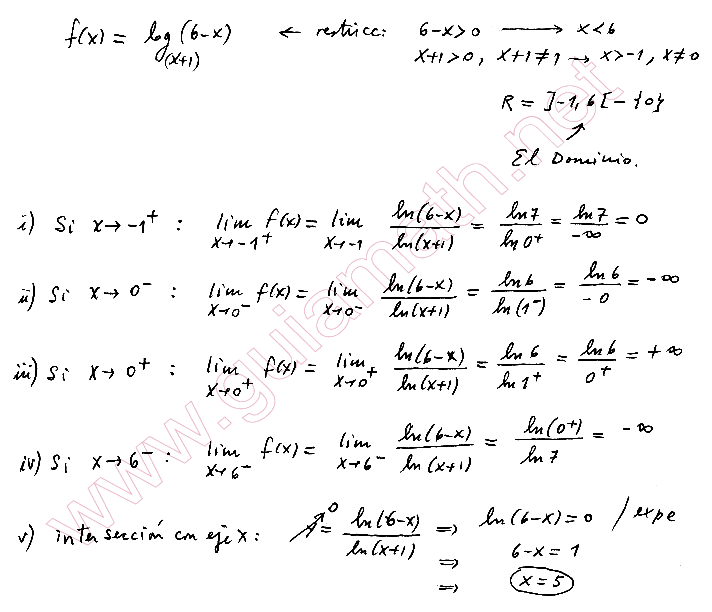 f(x) = log_(x+1) (6-x) ← restricc: 6-x>0 ⟶ x<6
x+1>0, x+1≠1 → x>-1, x≠0
R = ]-1, 6[ - {0}
El Dominio.
i) Si x→-1⁺ : lim_{x→-1⁺} f(x) = lim_{x→-1} ln(6-x)/ln(x+1) = ln7/ln0⁺ = ln7/-∞ = 0
ii) Si x→0⁻ : lim_{x→0⁻} f(x) = lim_{x→0⁻} ln(6-x)/ln(x+1) = ln6/ln(1⁻) = ln6/-0 = -∞
iii) Si x→0⁺ : lim_{x→0⁺} f(x) = lim_{x→0⁺} ln(6-x)/ln(x+1) = ln6/ln1⁺ = ln6/0⁺ = +∞
iv) Si x→6⁻ : lim_{x→6⁻} f(x) = lim_{x→6⁻} ln(6-x)/ln(x+1) = ln(0⁺)/ln7 = -∞
v) intersección con eje x : y⁰ = ln(6-x)/ln(x+1) ⇒ ln(6-x)=0 / expe
⇒ 6-x = 1
⇒ x=5
www.guiamath.net